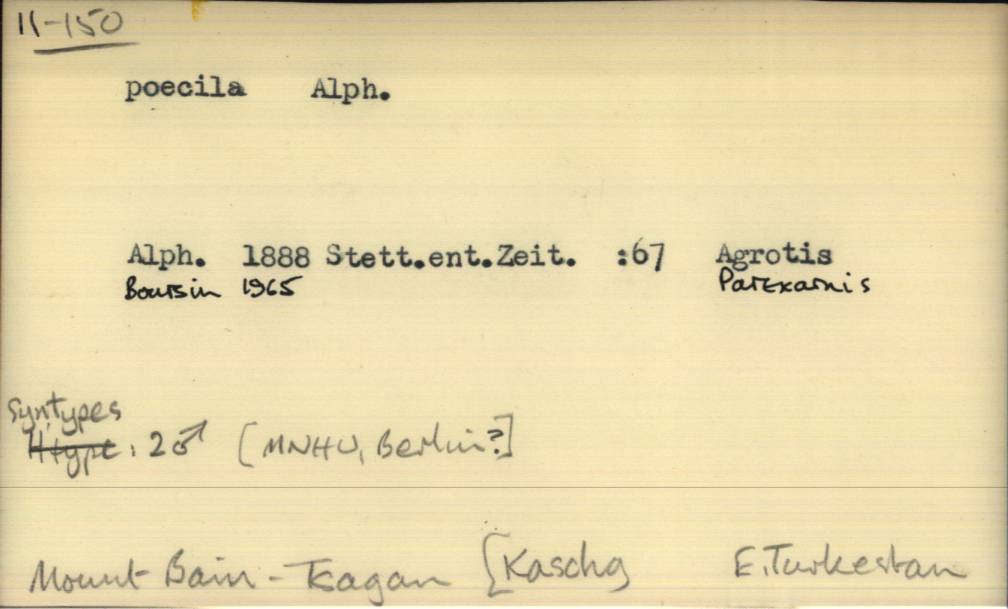 11-150
poecila Alph.
Alph. 1888 Stett.ent.Zeit. :67 Agrotis
Boursin 1965 Parexarnis
Syntypes
Htype: 2♂ [MNHU, Berlin?]
Mount Bain-Tsagan [Kaschg E.Turkestan